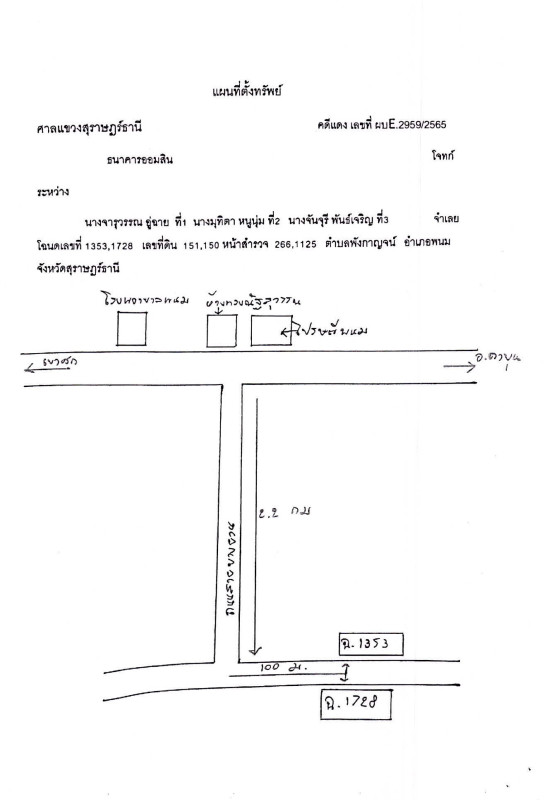 แผนที่ตั้งทรัพย์
ศาลแขวงสุราษฎร์ธานี คดีแดง เลขที่ ผบE.2959/2565
ธนาคารออมสิน โจทก์
ระหว่าง
นางจารุวรรณ อู่ฉาย ที่1 นางมุทิตา หนูนุ่ม ที่2 นางจันจุรี พันธ์เจริญ ที่3 จำเลย
โฉนดเลขที่ 1353,1728 เลขที่ดิน 151,150 หน้าสำรวจ 266,1125 ตำบลพังกาญจน์ อำเภอพนม
จังหวัดสุราษฎร์ธานี
โรงพยาบาลพนม ห้างทองณัฐสุวรรณ
ไปรษณีย์พนม
เขาสก อ.ตาขุน
2.2 กม
ฉ.1353
100 ม.
ฉ.1728